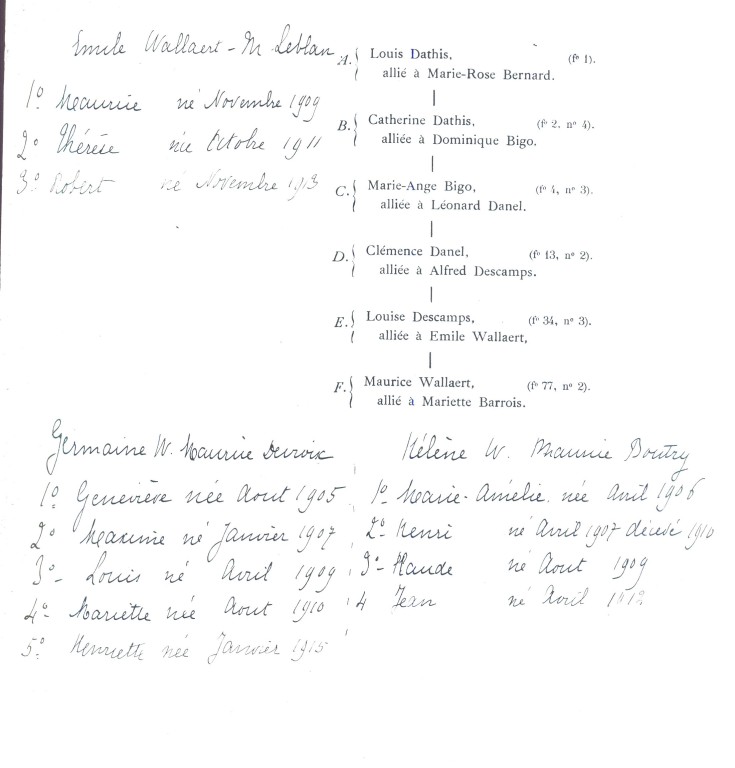 Emile Wallaert - M Leblan
1º Maurice né Novembre 1909
2º Thérèse née Octobre 1911
3º Robert né Novembre 1913
A. { Louis Dathis, (fº 1).
allié à Marie-Rose Bernard.
B. { Catherine Dathis, (fº 2. nº 4).
alliée à Dominique Bigo.
C. { Marie-Ange Bigo, (fº 4, nº 3).
alliée à Léonard Danel.
D. { Clémence Danel, (fº 13, nº 2).
alliée à Alfred Descamps.
E. { Louise Descamps, (fº 34, nº 3).
alliée à Emile Wallaert,
F. { Maurice Wallaert, (fº 77, nº 2).
allié à Mariette Barrois.
Germaine W. Maurice
1º Geneviève née Aout 1905
2º Maxime né Janvier 1907
3º- Louis né Avril 1909
4º- Mariette née Aout 1910
5º Henriette née Janvier 1915
Hélène W. Maurice Boutry
1º Marie-Amélie. née Avril 1906
2º Henri né Avril 1907 décédé 1910
3º- né Aout 1909
4 Jean né Avril 1912